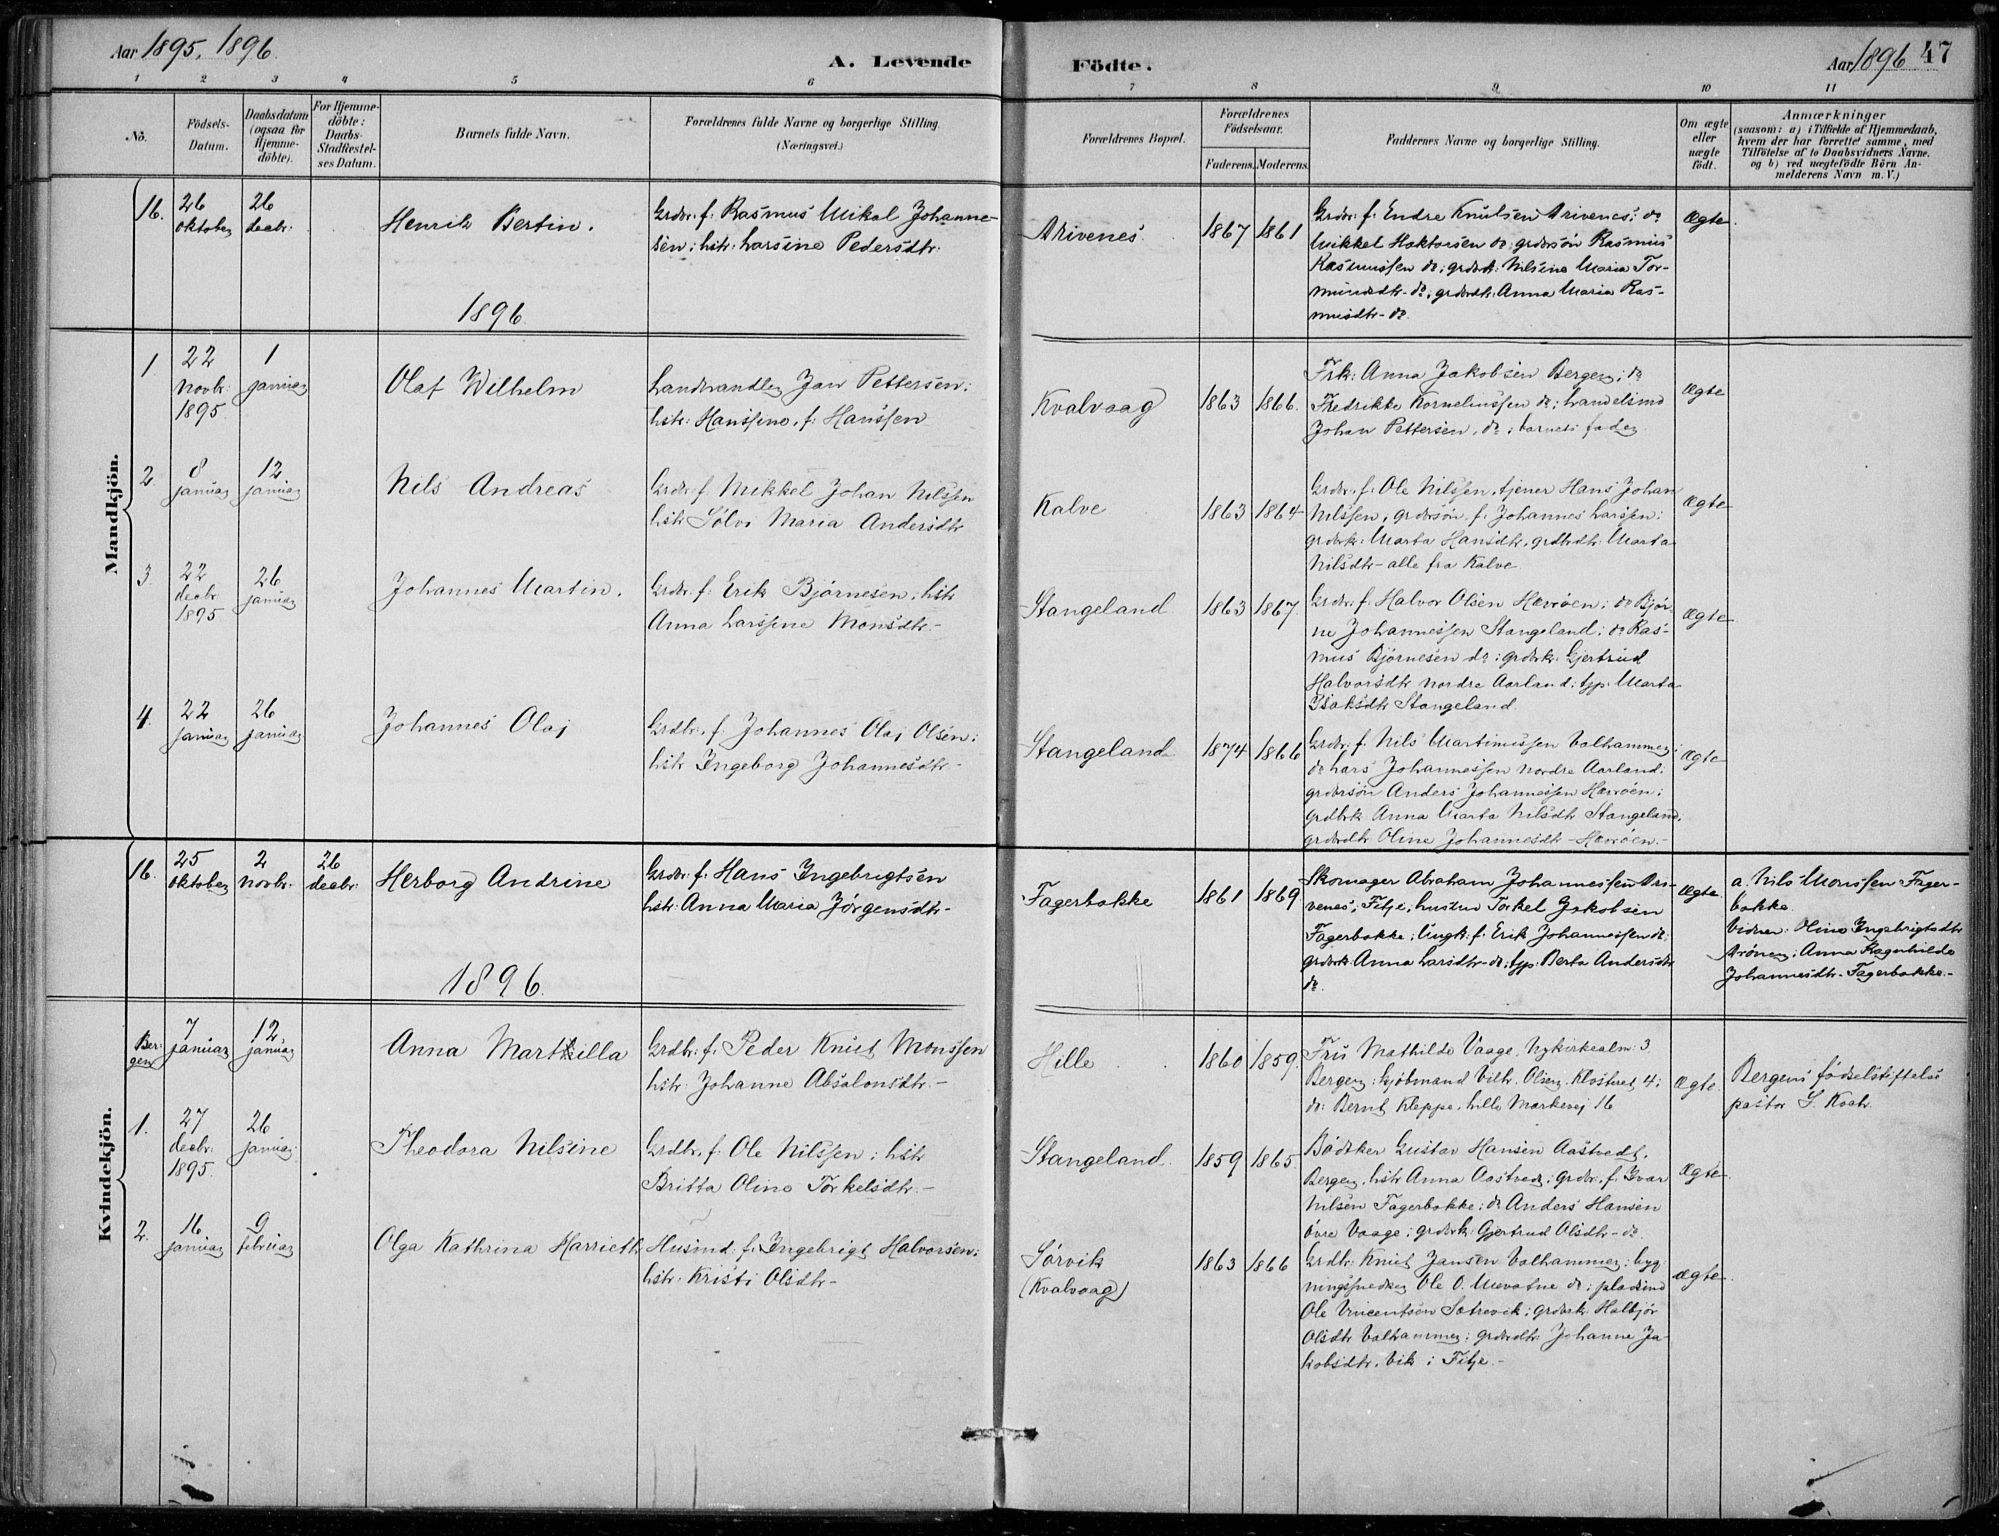 Aar 1895, 1896.
A. Levende
Födte.
Aar 1896 47
1 2 3 4 5 6 7 8 9 10 11
No.
Födsels-
Datum.
Daabsdatum
(ogsaa for
Hjemme-
döbte).
For Hjemme-
döbte:
Daabs-
Stadfæstel-
ses Datum.
Barnets fulde Navn.
Forældrenes fulde Navne og borgerlige Stilling.
(Næringsvei.)
Forældrenes Bopæl.
Forældrenes
Födselsaar.
Faderens. Moderens.
Faddernes Navne og borgerlige Stilling.
Om ægte
eller
uægte
födt.
Anmærkninger
(saasom: a) i Tilfælde af Hjemmedaab,
hvem der har forrettet samme, med
Tilföielse af to Daabsvidners Navne.
og b) ved uægtefödte Börn An-
melderens Navn m. V.)
Mandkjön.
16.
26
oktober
26
decbr.
Henrik Bertin.
Grdbr. f. Rasmus Mikal Johanne-
sen; hstr. Larsine Pedersdtr.
Arivenes
1867 1861
Grdbr. f. Endre Knutsen Arivenes; do
Mikkel Haktorsen do; grdbrsön Rasmus
Rasmussen do; grdbrk. Nilsine Maria Tor-
mundsdtr- do, grdbrdtr. Anna Maria Ras-
musdtr- do.
Ægte
1896
1.
22
Novbr.
1895.
1
januar
Olaf Wilhelm
Landhandler Jan Pettersen;
hstr. Hanssine, f. Hanssen
Kvalvaag
1863 1866.
Frk. Anna Jakobsen Bergen; do
Fredrikke Korneliussen do; handelsmd
Johan Pettersen, do; barnets fader.
Ægte
2.
8
januar
12
januar
Nils Andreas
Grdbr. f. Mikkel Johan Nilssen
hstr. Sølvi Maria Andersdtr
Kalve
1863 1864
Grdbr. f. Ole Nilssen, tjener Hans Johan
Nilssen, grdbrsön f. Johannes Larssen;
grdbrk. Marta Hansdtr, grdbrdtr. Marta
Nilsdtr- alle fra Kalve
Ægte
3.
22
decbr
1895
26
januar
Johannes Martin.
Grdbr. f. Erik Bjørnesen, hstr
Anna Larssine Monsdtr-
Stangeland
1863 1867.
Grdbr. f. Halvor Olsen Hovröen; do Björ-
ne Johannessen Stangeland; do Ras-
mus Bjørnesen do; grdbrk. Gjertrud
Halvorsdtr nordre Aarland; typ. Marta
Isaksdtr Stangeland.
Ægte
4.
22
januar
26
januar
Johannes Olaj
Grdbr. f. Johannes Olaj Olsen;
hstr Ingeborg Johannesdtr-
Stangeland
1874 1866
Grdbr. f. Nils Martinussen Valhammer;
do Lars Johannessen nordre Aarland;
grdbrsön Anders Johannessen Hovröen;
grdbrk Anna Marta Nilsdtr Stangeland,
grdbrdtr Oline Johannesdtr- Hovröen.-
Ægte
Kvindekjön.
16.
25
oktober
2
novbr.
26
decbr.
Herborg Andrine
Grdbr. f. Hans Ingebrigtsen
hstr. Anna Maria Jörgensdtr-
Fagerbakke
1861 1869
Skomager Abraham Johannessen Ari-
venes, Fitje, husmn Torkel Jakobsen
Fagerbakke; Ungk. f. Erik Johannessen do;
grdbrk Anna Larsdtr- do; typ. Berta Andersdtr
do.
Ægte
a. Nils Monssen Fager-
bakke.
Vidner: Oline Ingebrigtsdtr
Arönen; Anna Ragnhilda
Johannesdtr- Fagerbakke.-
1896.
Ber-
gen
7
januar
12.
januar
Anna Marthilla
Grdbr. f. Peder Knut Monssen
hstr. Johanne Absalonsdtr.-
Hille
1860 1859.
Fru Mathilde Vaage, Nykirkealm. 3
Bergen; kjöbmand Vilh. Olsen, Klosteret 4;
do: Bernt Kleppe, Lille Markevej 16
Ægte.
Bergens födselstiftelse
pastor S. Koch.
1.
27
decbr.
1895.
26
januar
Theodora Nilsine
Grdbr. f. Ole Nilssen; hstr
Britta Oline Torkelsdtr.-
Stangeland
1859 1865
Bödtker Gustav Hansen Aastvedt,
Bergen, hstr Anna Aastvedt; grdbr. f. Ivar
Nilsen Fagerbakke; do Anders Hansen
övre Vaage; grdbrk. Gjertrud Olsdtr- do.
Ægte
2.
16
januar
9
februar
Olga Kathrina Harrieth
Husmd. f. Ingebrigt Halvorsen;
hstr. Kristi Olsdtr-
Sørvik
(Kvalvaag)
1863 1866
Grdbr. Knut Jansen Valhammer; byg-
ningssnedker Ole O. Mevatne do; pladsmd
Ole Vincentsen Sætrevik; grdbrk. Halbjör
Olsdtr Valhammer; grdbrdtr. Johanne Ja-
kobsdtr. Vik i Fitje.-
Ægte